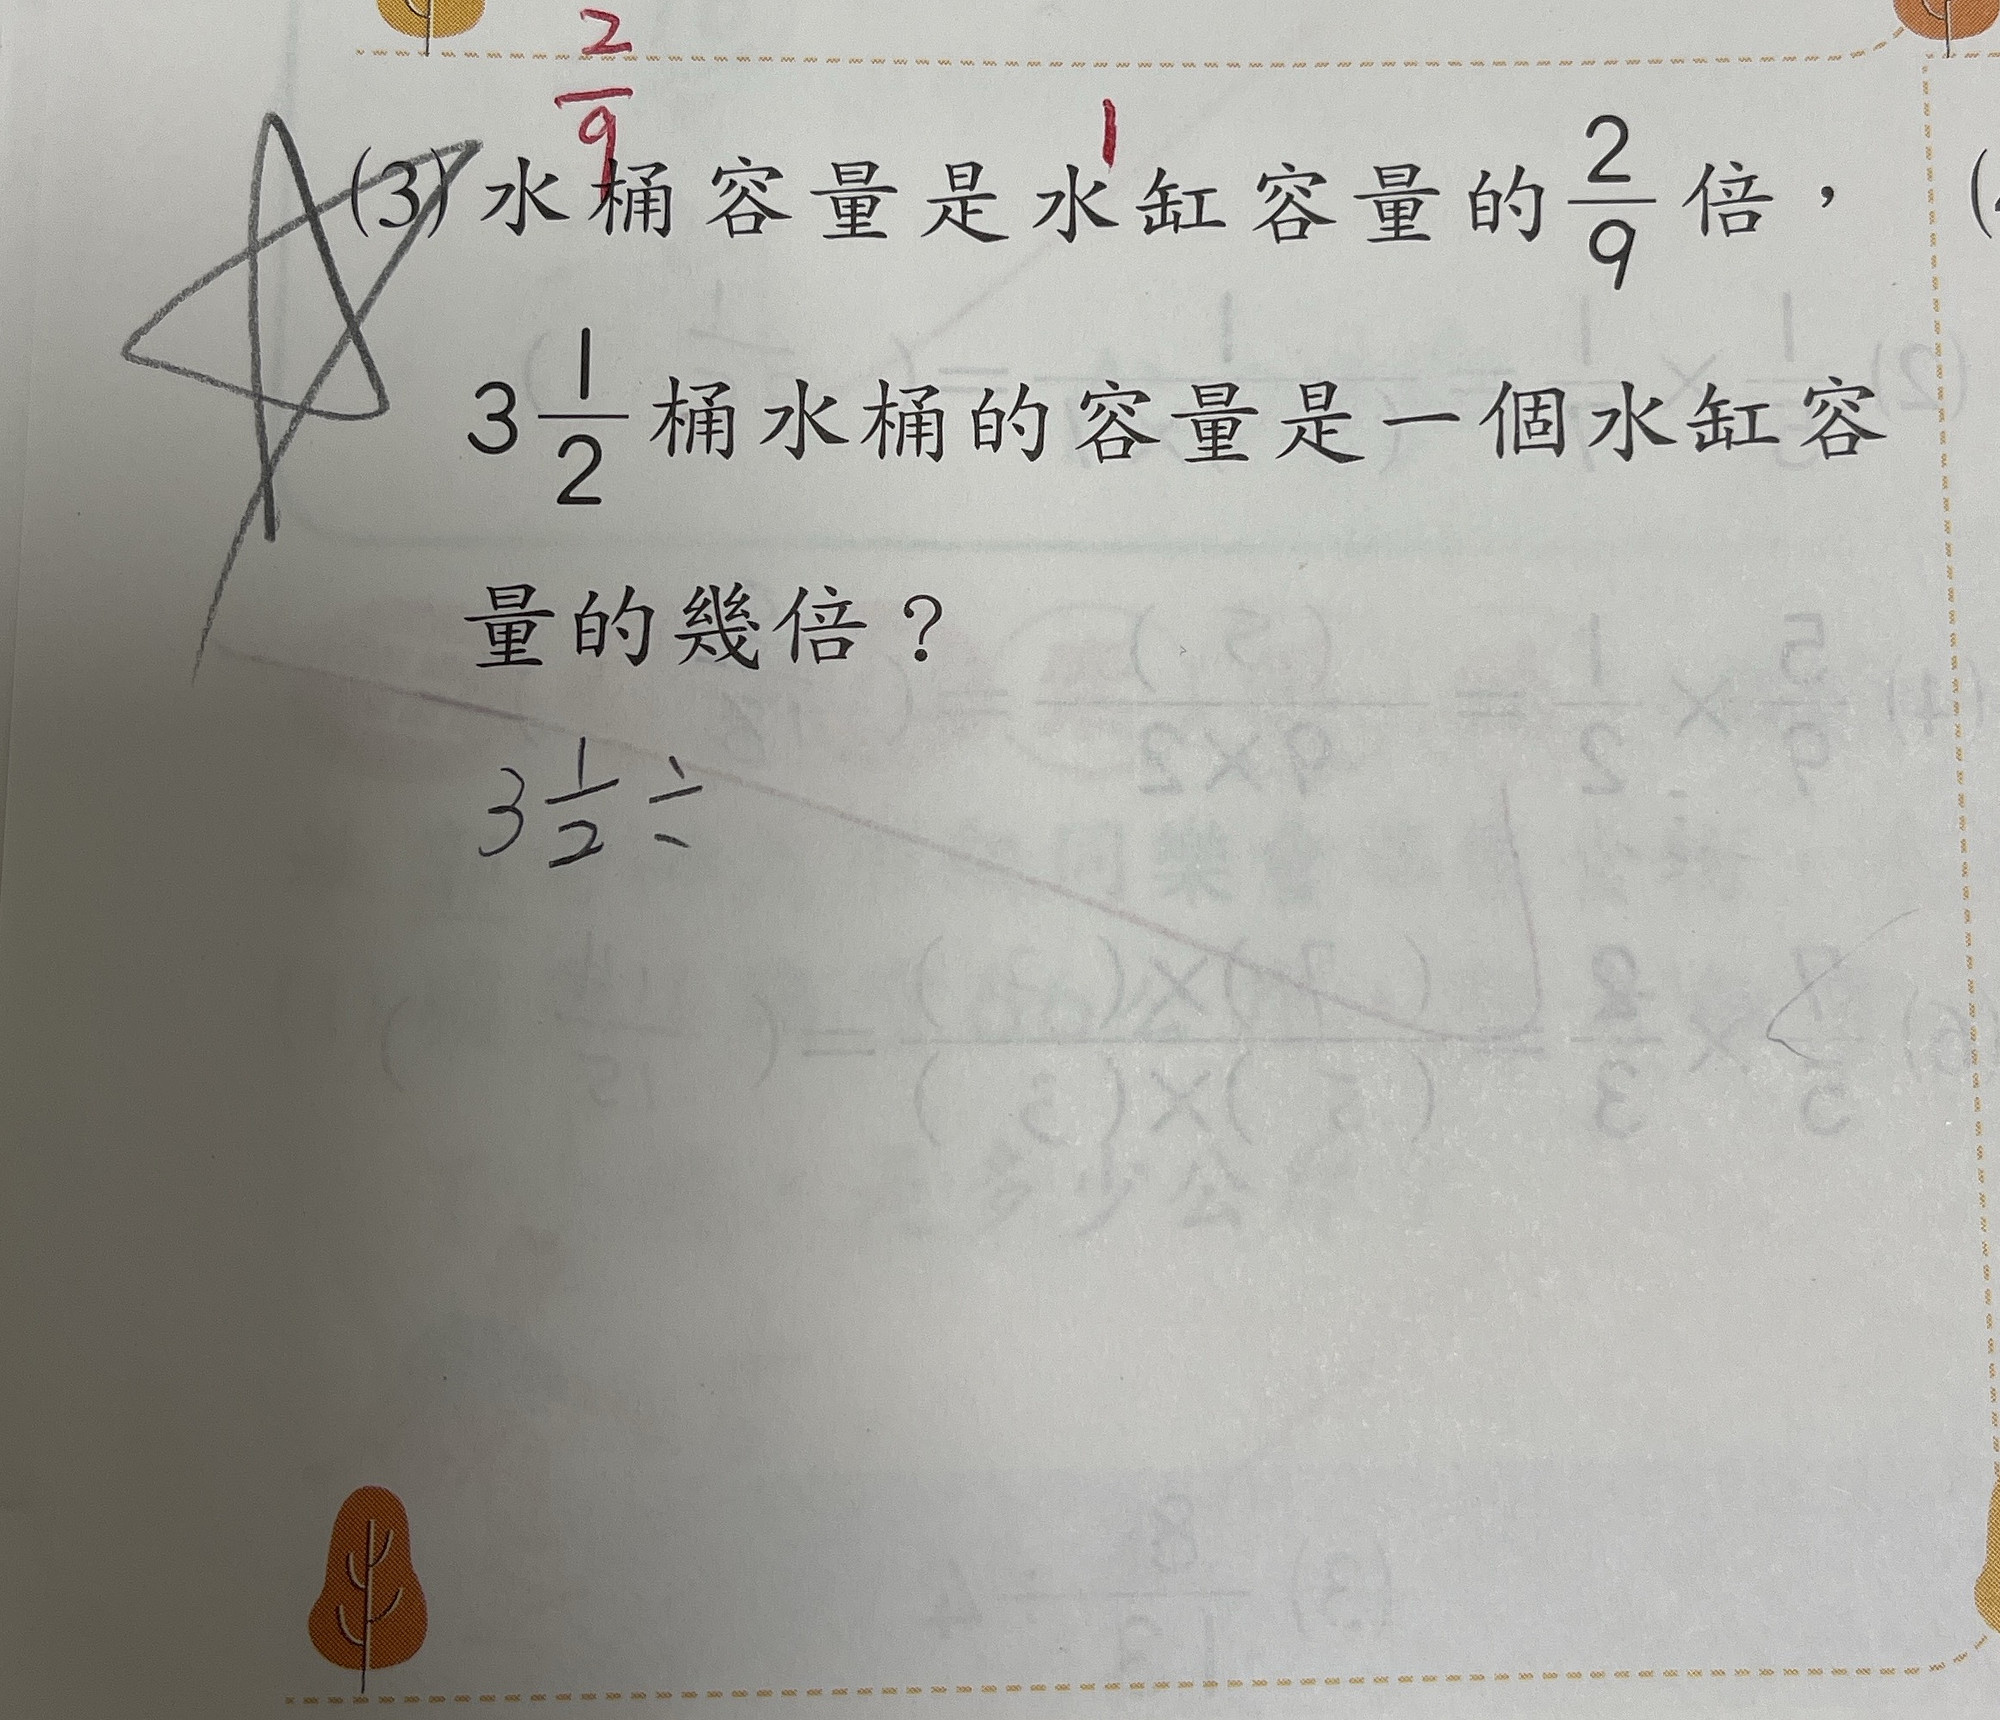 2/9
1
(3) 水桶容量是水缸容量的 2/9 倍，
3 1/2 桶水桶的容量是一個水缸容
量的幾倍？
3 1/2 ÷